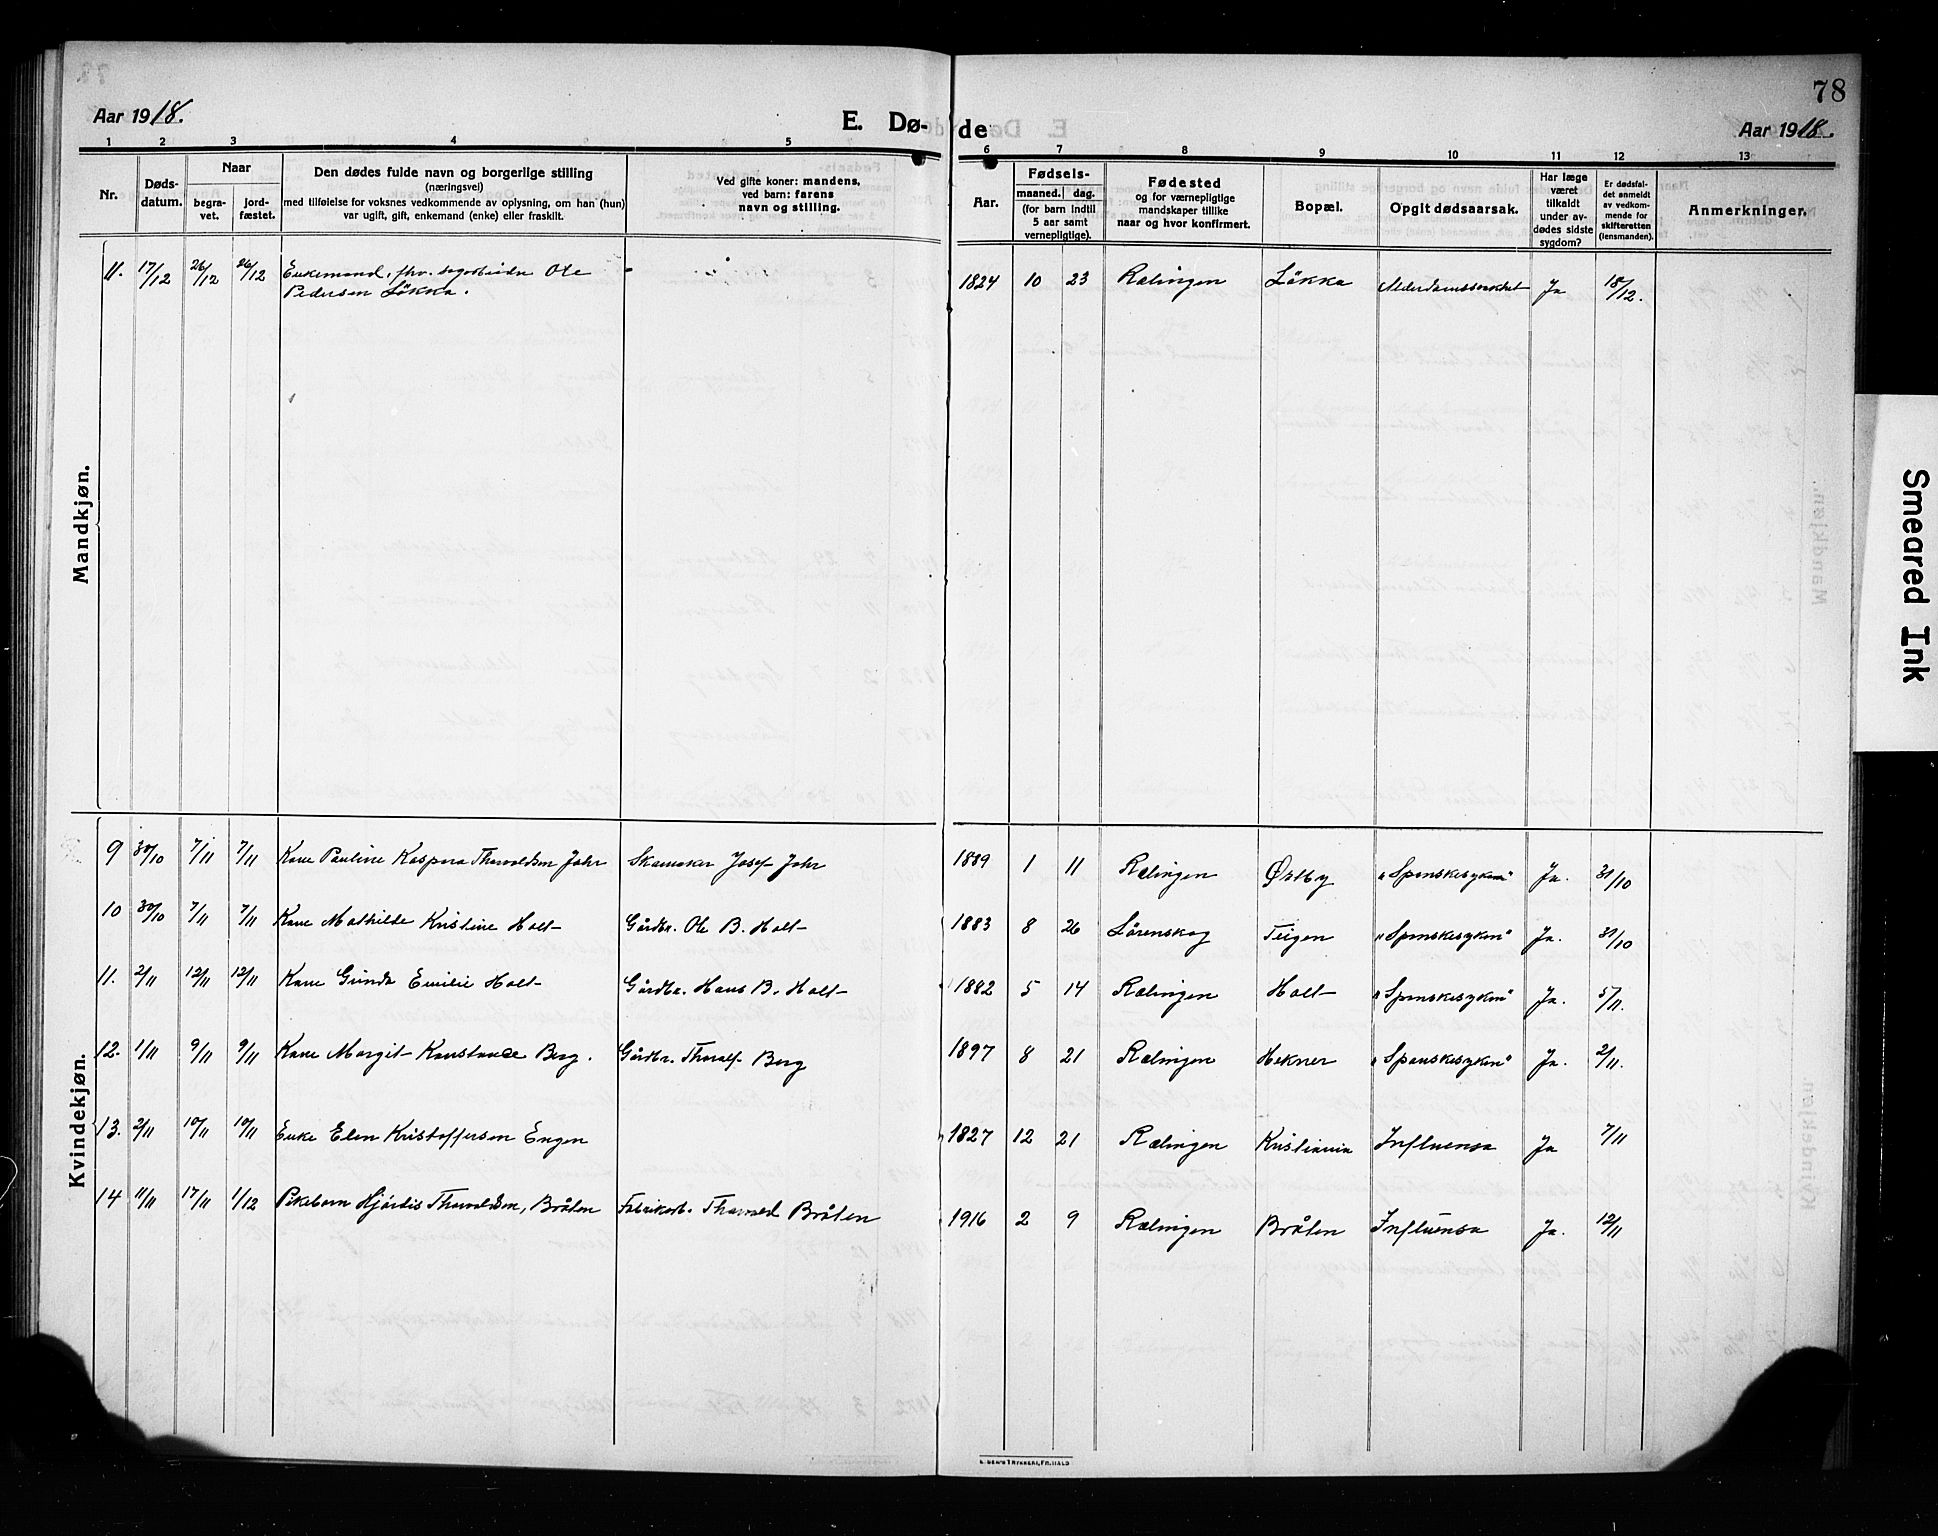 78
Aar 1918.
E. Dø-
de
Aar 1918.
1 2 3 4 5 6 7 8 9 10 11 12 13
Nr.
Døds-
datum.
Naar
begra-
vet.
jord-
fæstet.
Den dødes fulde navn og borgerlige stilling
(næringsvei)
med tilføielse for voksnes vedkommende av oplysning, om han (hun)
var ugift, gift, enkemand (enke) eller fraskilt.
Ved gifte koner: mandens,
ved barn: farens
navn og stilling.
Aar.
Fødsels-
maaned. dag.
(for barn indtil
5 aar samt
vernepligtige).
Fødested
og for værnepligtige
mandskaper tillike
naar og hvor konfirmert.
Bopæl.
Opgit dødsaarsak.
Har læge
været
tilkaldt
under av-
dødes sidste
sygdom?
Er dødsfal-
det anmeldt
av vedkom-
mende for
skifteretten
(lensmanden).
Anmerkninger.
Mandkjøn.
11. 17/12 26/12 26/12 Enkemand, fhv. sagarbeider Ole 1824 10 23 Rælingen Løkka Alderdomssvakhet Ja 18/12.
Pedersen Løkka.
Kvindekjøn.
9 30/10 7/11 7/11 Kone Pauline Kaspara Thorvaldsen Johr Skomaker Josef Johr 1889 1 11 Rælingen Østby "Spanskesyken" Ja. 31/10
10 30/10 7/11 7/11 Kone Mathilde Kristine Holt Gårdbr. Ole B. Holt 1883 8 26 Lørenskog Teigen "Spanskesyken" Ja. 31/10
11. 2/11 12/11 12/11 Kone Gunda Emilie Holt Gårdbr. Hans B. Holt 1882 5 14 Rælingen Holt "Spanskesyken" Ja. 5/11.
12. 1/11 9/11 9/11 Kone Margit Konstance Berg. Gårdbr. Thoralf Berg 1897 8 21 Rælingen Hekner "Spanskesyken" Ja. 2/11.
13. 2/11 10/11 10/11 Enke Elen Kristoffersen Engen 1827 12 21 Rælingen Kristiania Influensa Ja 7/11
14 11/11 17/11 1/12 Pikebarn Hjørdis Thorvaldsen, Bråten Fabrikarb. Thorvald Bråten 1916 2 9 Rælingen Bråten Influensa Ja. 12/11
Smeared Ink